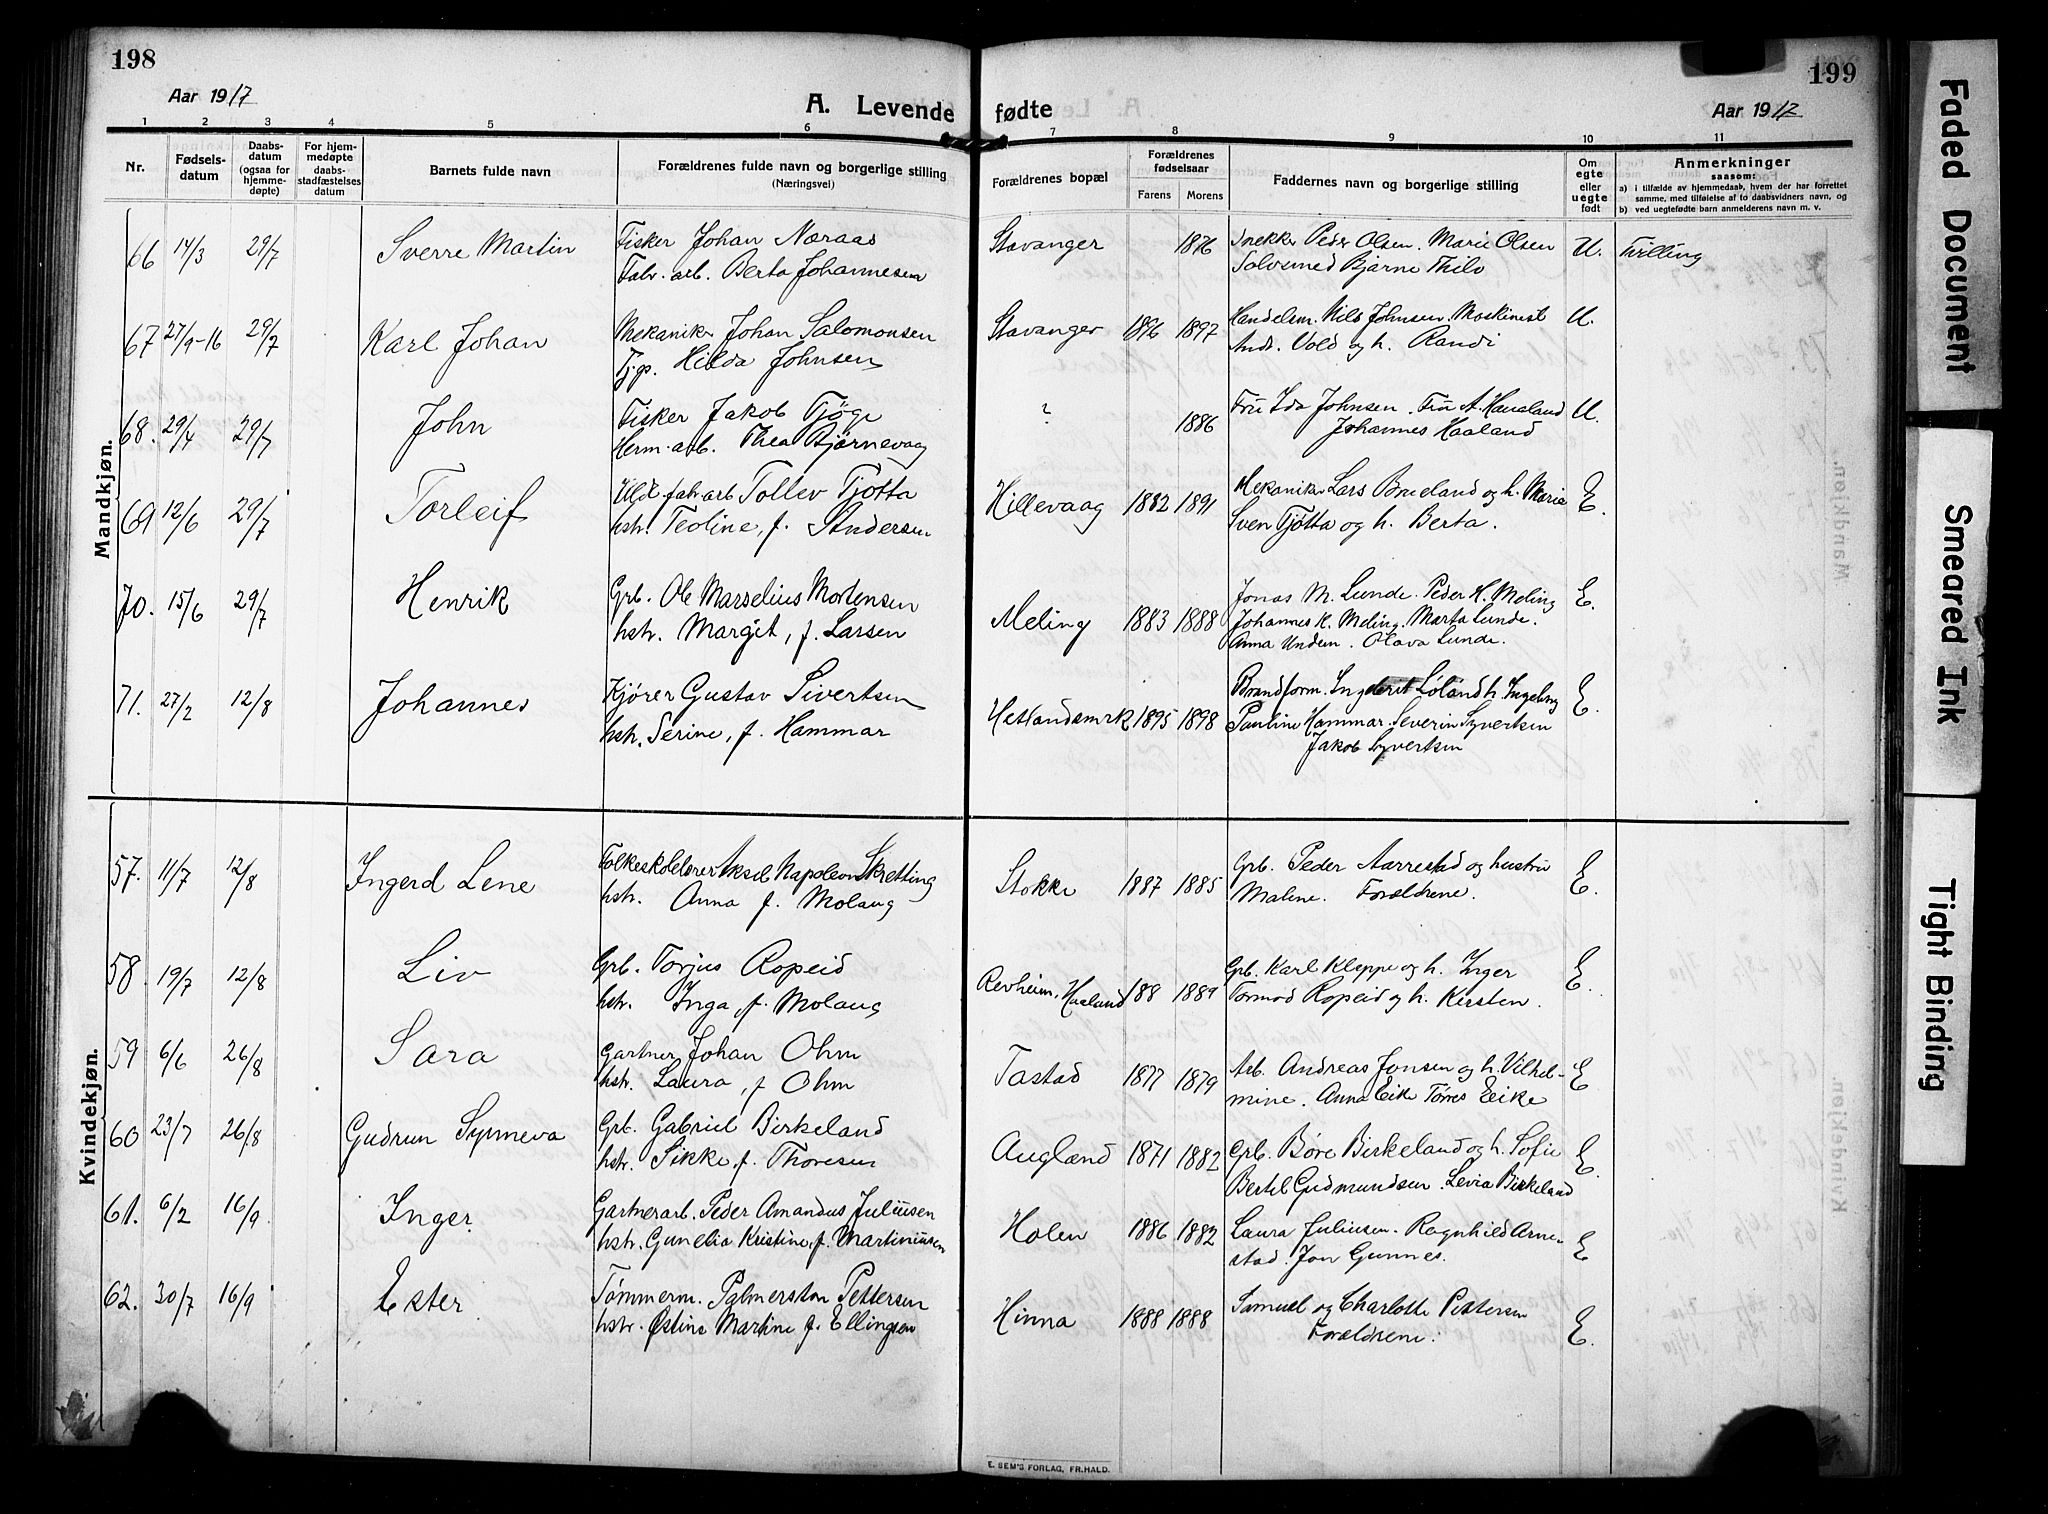 198
199
Aar 1917
A. Levende fødte
Aar 1917
1 2 3 4 5 6 7 8 9 10 11
Nr.
Fødsels-
datum
Daabs-
datum
(ogsaa for
hjemme-
døpte)
For hjem-
medøpte
daabs-
stadfæstelses
datum
Barnets fulde navn
Forældrenes fulde navn og borgerlige stilling
(Næringsvei)
Forældrenes bopæl
Forældrenes
fødselsaar
Farens
Morens
Faddernes navn og borgerlige stilling
Om
egte
eller
uegte
født
Anmerkninger
saasom:
a) i tilfælde av hjemmedaab, hvem der har forrettet
samme, med tilføielse af to daabsvidners navn, og
b) ved uegtefødte barn anmelderens navn m. v.
Mandkjøn.
66 14/3 29/7 Sverre Martin Fisker Johan Næraas Stavanger 1876 Snekker Peder Olsen. Marie Olsen U. Tvilling
Fabr. arb. Berta Johannesen Bjarne Thilo
67 27/9-16 29/7 Karl Johan Mekaniker Johan Salomonsen Stavanger 1896 1897 Handelsm. Nils Johnsen. Maskinist U.
Tjp. Hilda Johnsen Andr. Vold og h. Randi
68. 29/4 29/7 John Fisker Jakob Tjöge ? 1886 Fru Ida Johnsen. Fru A. Haaland U.
Herm. arb. Thea Bjørnevaag Johannes Haaland
69 12/6 29/7 Torleif Uld. fabr arb Tollev Tjøtta Hillevaag 1882 1891 Mekaniker Lars Brueland og h. Maria E.
hstr. Teoline, f. Andersen Sven Tjøtta og h. Berta.
70. 15/6 29/7 Henrik Grb. Ole Marselius Mortensen Meling 1883 1888 Jonas M. Lunde. Peder H. Meling E.
hstr. Margit, f. Larsen Johannes K. Meling. Marta Lunde.
Anna Undem. Olava Lunde.
71. 27/2 12/8 Johannes Kjører Gustav Sivertsen Hetlandsmrk 1895 1898 Brandform. Løland h. Ingeborg E.
hstr. Serine, f. Hammar Pauline Hammar. Severin Syvertsen
Jakob Syvertsen
Kvindekjøn.
57. 11/7 12/8 Ingerd Lene Folkeskolelærer Aksel Napoleon Skretting Stokke 1887 1885 Grb. Peder Aarrestad og hustru E.
hstr. Anna f. Molaug Malene. Forældrene.
58. 19/7 12/8 Liv Grb. Torjus Ropeid Revheim, Haaland 188 1889 Grb. Karl Kleppe og h. Inger E.
hstr. Inga, f. Molaug Tormod Ropeid og h. Kirsten.
59 6/6 26/8 Sara Gartner Johan Ohm Tastad 1877 1879 Arb. Andreas Jonsen og h. Vilhel- E
hstr. Laura, f Ohm mine. Anna Eike Tørres Eike
60 23/7 26/8 Gudrun Synneva Grb. Gabriel Birkeland Augland 1871 1882 Grb. Børe Birkeland og h. Sofie E.
hstr. Sikke, f. Thoresen Bertel Gudmundsen. Levia Birkeland
61. 6/2 16/9 Inger. Gartnerarb. Peder Amandus Juliusen Holen 1886 1882 Laura Juliusen. Ragnhild Arne- E
hstr. Gunelia Kristine, f. Martiniusen stad. Jon Gunnes.
62. 30/7 16/9 Ester Tømmerm. Palmerston Pettersen Hinna 1888 1888 Samuel og Charlotte Pettersen E.
hstr. Østine Martine f. Ellingsen Forældrene.
E. SEM'S FORLAG, FR.HALD.
Faded Document
Smeared Ink
Tight Binding